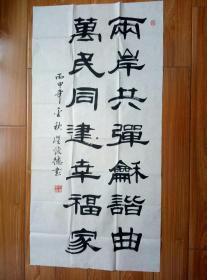 兩岸共彈龢諧曲
萬民同建幸福家
丙申年金秋
書